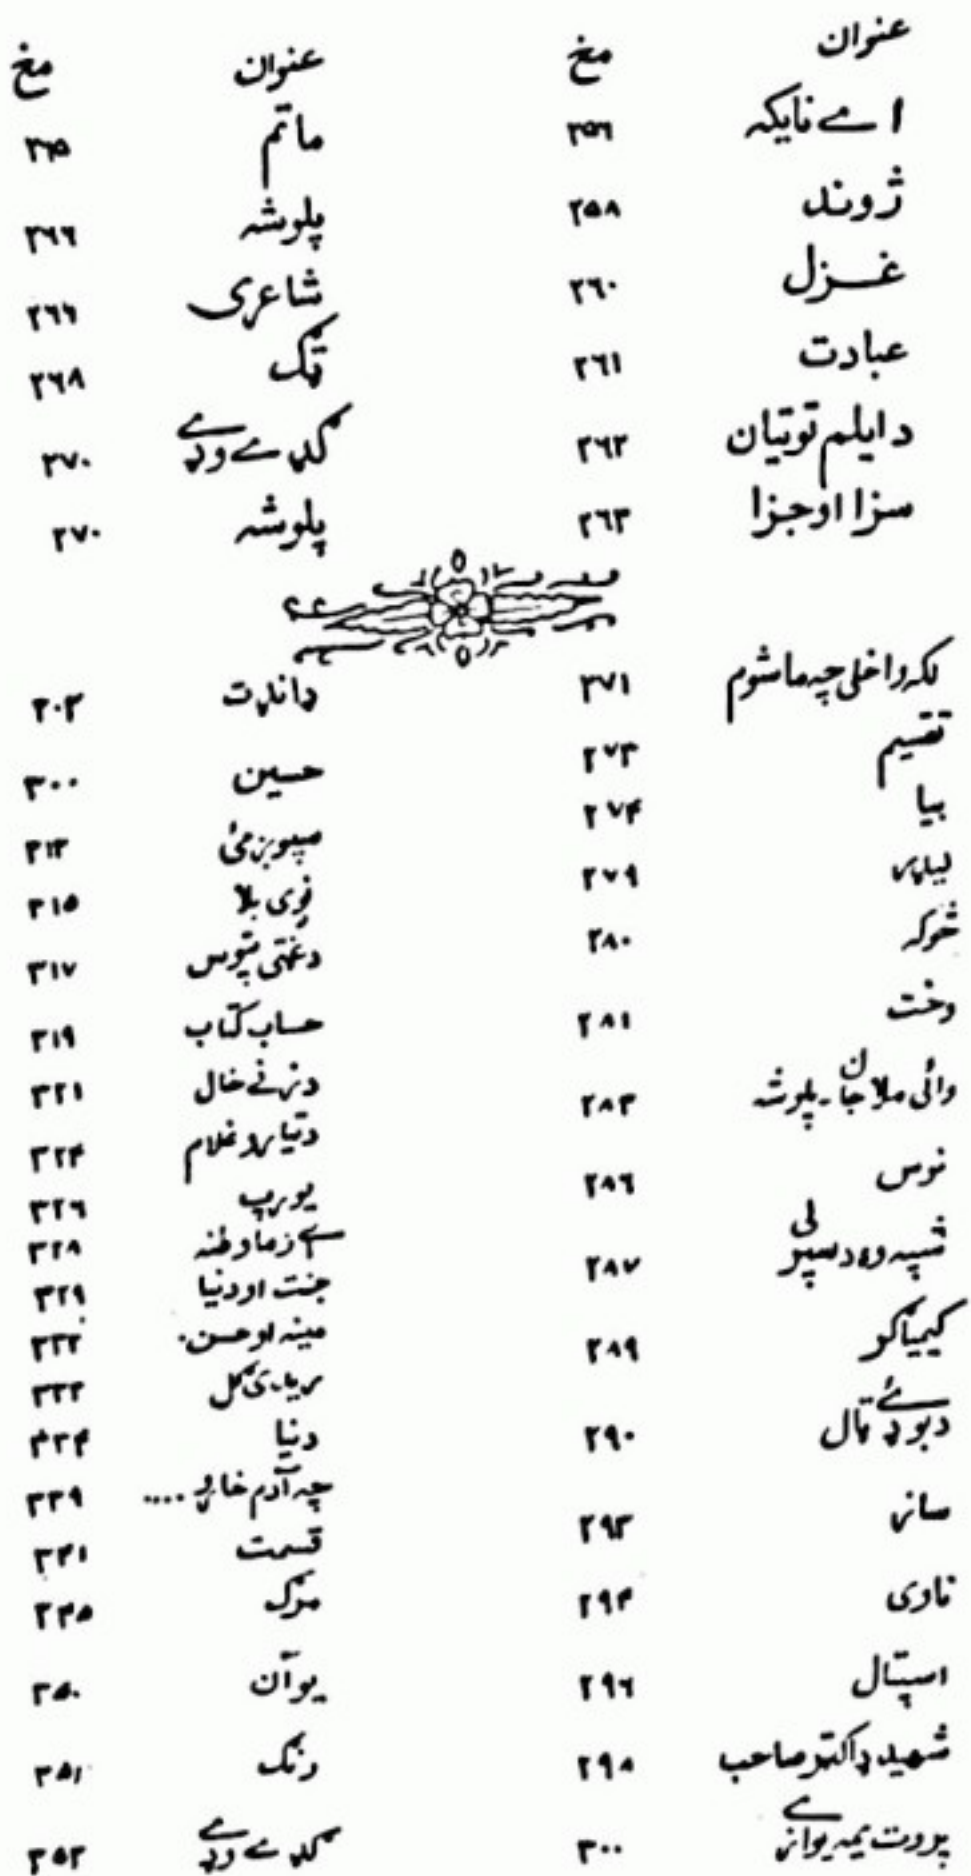 عنوان مخ
اے نایکہ ۲۵۶
ژوند ۲۵۸
غزل ۲۶۰
عبادت ۲۶۱
د ایلم توتیان ۲۶۲
سزا او جزا ۲۶۳
عنوان مخ
ماتم ۲۶۵
پلوشہ ۲۶۶
شاعری ۲۶۶
ټک ۲۶۸
ګډے وډے ۲۷۰
پلوشہ ۲۷۰
لکہ واخلی چہ ماشوم ۲۷۱
تقسیم ۲۷۳
بیا ۲۷۴
لیډر ۲۷۹
څوکہ ۲۸۰
وخت ۲۸۱
وائی ملا جان ـ پلوشہ ۲۸۳
نوس ۲۸۶
شپہ وہ د سپوږلی ۲۸۷
کیمیاګر ۲۸۹
د بوډۍ ټال ۲۹۰
ساز ۲۹۳
ناوی ۲۹۴
اسپتال ۲۹۶
شھید ډاکټر صاحب ۲۹۸
پروت یمہ یوازے ۳۰۰
حسین ۳۰۰
۳۱۳
بلا ۳۱۵
د غټی پټوس ۳۱۷
حساب کتاب ۳۱۹
د زنے خال ۳۲۱
د تیارو غلام ۳۲۴
یورپ ۳۲۶
اے زما وطنہ ۳۲۸
جنت او دنیا ۳۲۹
مینہ او حسن ۳۳۲
د ریدی ګل ۳۳۳
دنیا ۳۳۴
چہ آدم خاورے .... ۳۳۹
قسمت ۳۴۱
مرګ ۳۴۵
یو آن ۳۵۰
رنګ ۳۵۱
ګډے وډے ۳۵۳